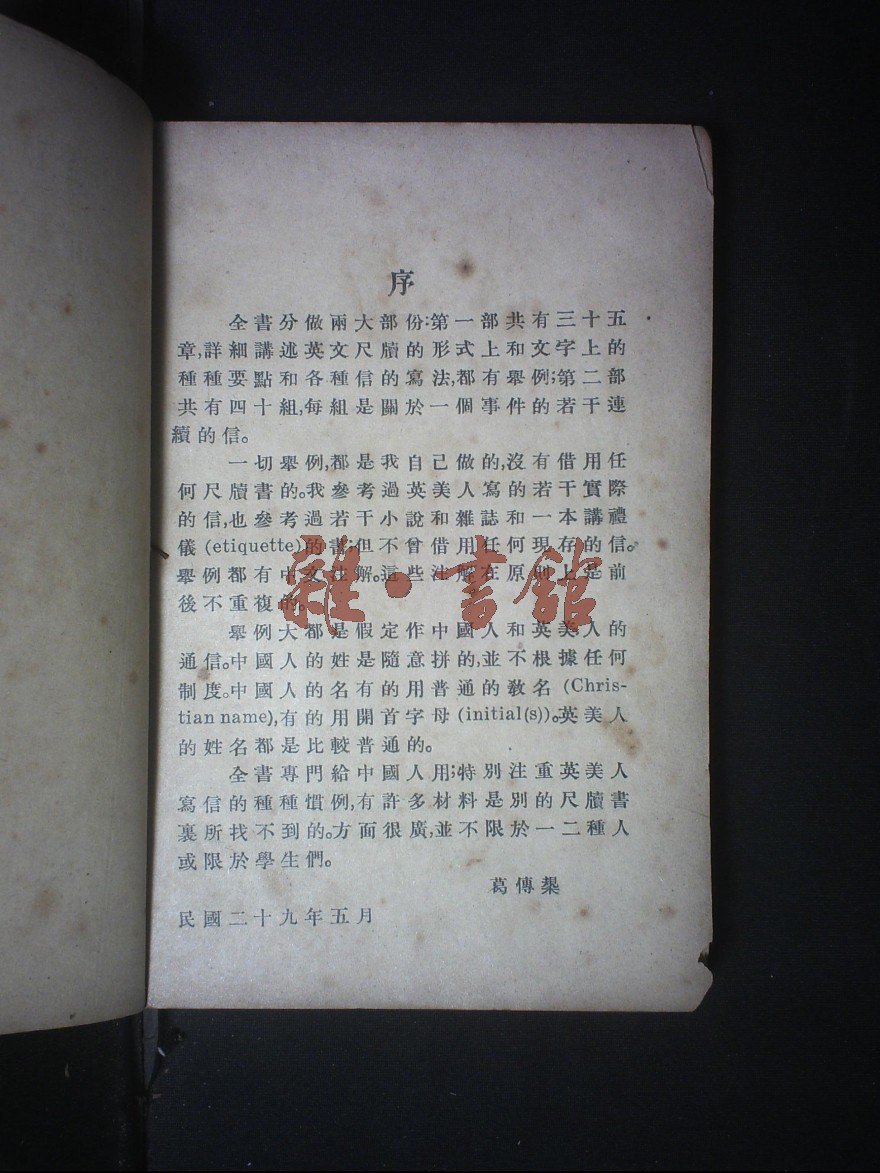 序
全書分做兩大部份;第一部共有三十五
章,詳細講述英文尺牘的形式上和文字上的
種種要點和各種信的寫法,都有舉例;第二部
共有四十組,每組是關於一個事件的若干連
續的信。
一切舉例,都是我自己做的,沒有借用任
何尺牘書的。我參考過英美人寫的若干實際
的信,也參考過若干小說和雜誌和一本講禮
儀(etiquette)的書;但不曾借用任何現存的信。
舉例都有中文注解。這些注解在原則上是前
後不重複的。
雜·書館
舉例大都是假定作中國人和英美人的
通信。中國人的姓是隨意拼的,並不根據任何
制度。中國人的名有的用普通的教名(Chris-
tian name),有的用開首字母(initial(s))。英美人
的姓名都是比較普通的。
全書專門給中國人用;特別注重英美人
寫信的種種慣例,有許多材料是別的尺牘書
裏所找不到的。方面很廣,並不限於一二種人
或限於學生們。
葛傳槼
民國二十九年五月